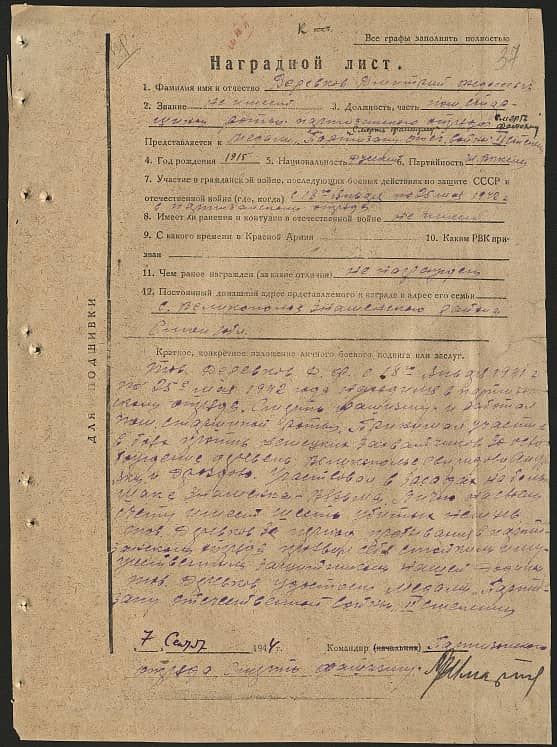 К
Все графы заполнять полностью
37
Наградной лист.
1. Фамилия имя и отчество Деревков Дмитрий
2. Звание не имеет 3. Должность, часть пом
роты партизанского отряда Смерть
фашизму
Представляется к медали "Партизану Отеч. войны" II степени
4. Год рождения 1915 5. Национальность русский 6. Партийность
7. Участие в гражданской войне, последующих боевых действиях по защите СССР и
отечественной войне (где, когда) с 18го января по 25 мая 1942 г
в партизанском отряде
8. Имеет ли ранения и контузии в отечественной войне не имеет
9. С какого времени в Красной Армии 10. Каким РВК при-
зван
11. Чем ранее награжден (за какие отличия) не награжден
12. Постоянный домашний адрес представляемого к награде и адрес его семьи
с. Великополье Знаменского района
Смол обл.
ДЛЯ ПОДШИВКИ
Краткое, конкретное изложение личного боевого подвига или заслуг.
Тов. Деревков Д. Ф. с 18го января
по 25е мая 1942 года находился в партизан
ском отряде "Смерть фашизму" и работал
пом. старшиной роты. Принимал участие
в боях против немецких захватчиков за осво
бождение деревень Великополье
и Дроздово. Участвовал в засадах на боль
шаке Знаменка - Вязьма. Лично на своем
счету имеет шесть убитых немцев.
Тов. Деревков за период пребывания в парти
занском отряде проявил себя стойким и му
жественным защитником нашей Родины.
Тов. Деревков удостоен медали "Парти
зану отечественной войны" II степени
7 1944 г. Командир (начальник) Партизанского
отряда Смерть фашизму